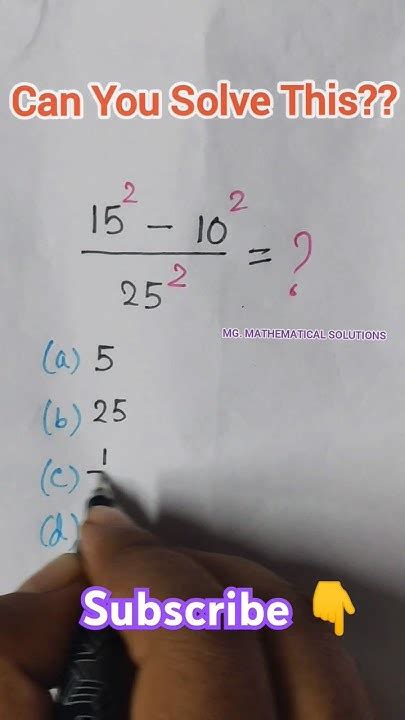 Can You Solve This??
15² - 10²
25² = ?
MG. MATHEMATICAL SOLUTIONS
(a) 5
(b) 25
(c) 1
(d)
Subscribe 👇